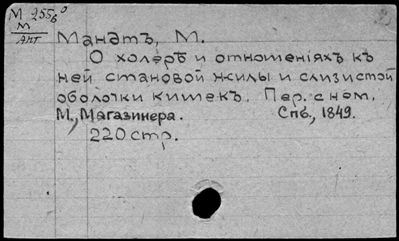 М 2556⁰
М
Ант
Мандтъ, М.
О холерѣ и отношеніяхъ къ
ней становой жилы и слизистой
оболочки кишекъ. Пер. с нем.
М., Магазинера. Спб., 1849.
220 стр.